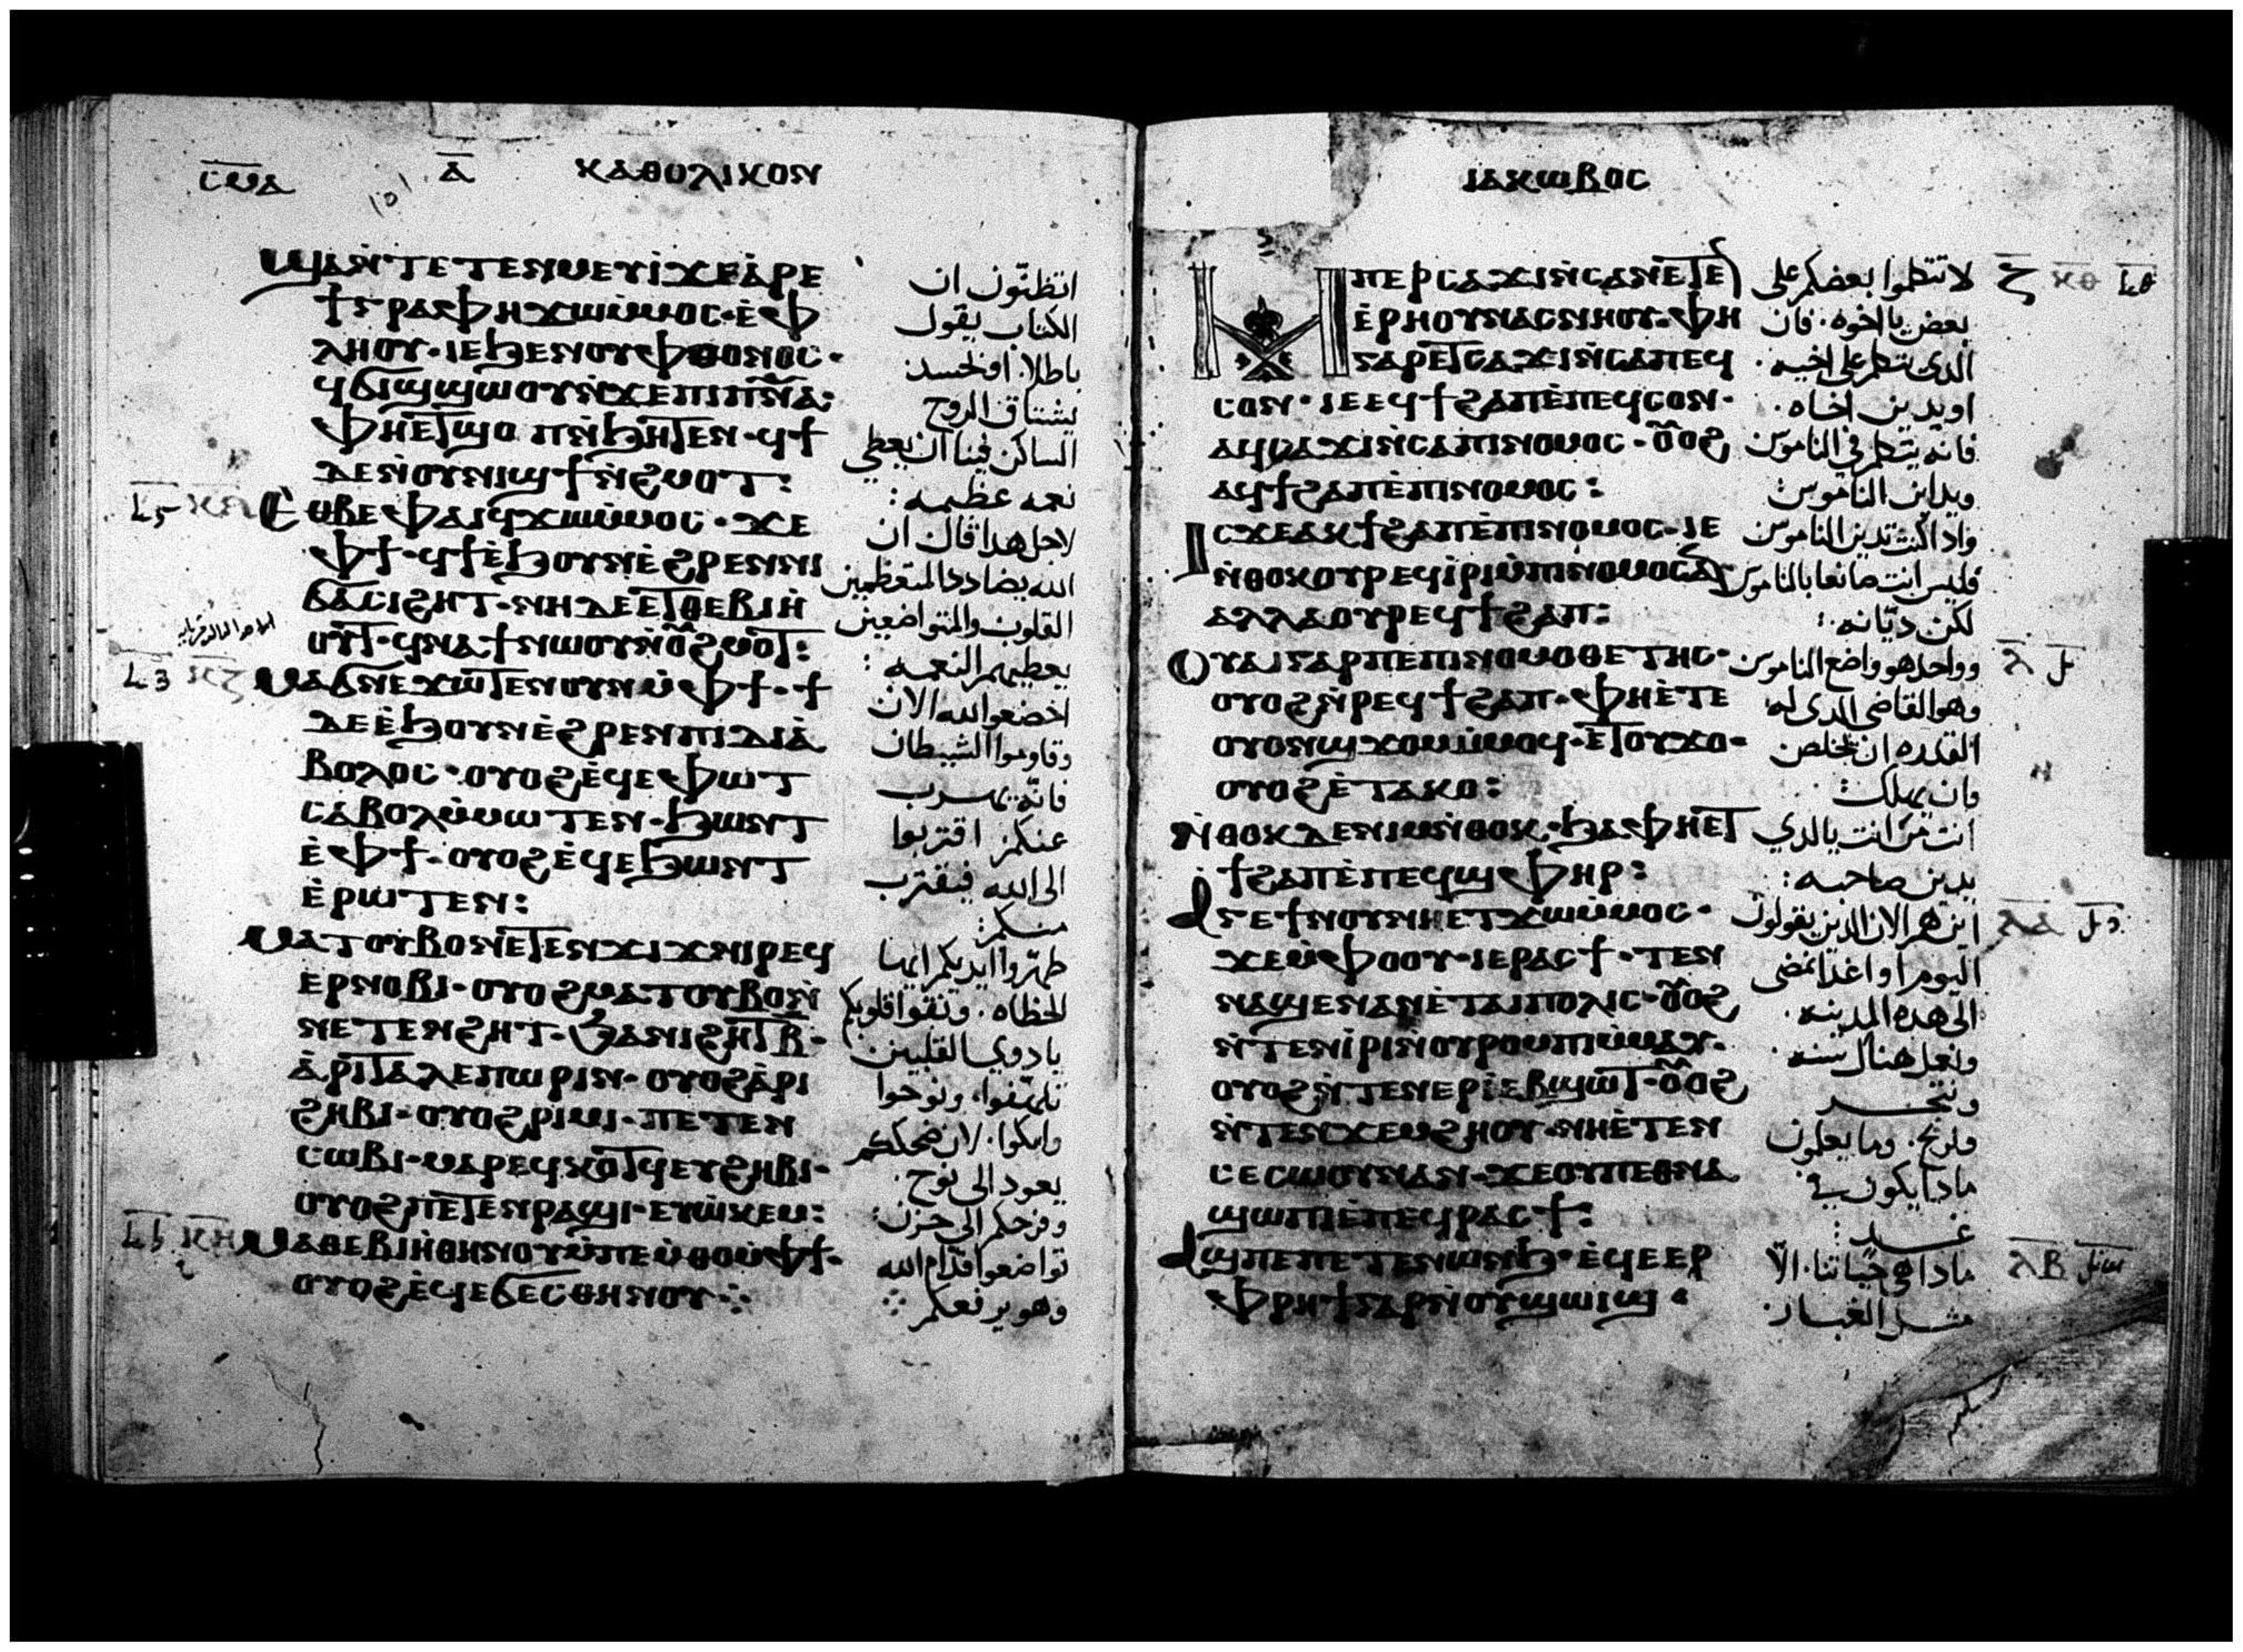 ⲥⲙⲁ ⲁ ⲕⲁⲑⲟⲗⲓⲕⲟⲛ
ϣⲁⲛ ⲧⲉⲧⲉⲛⲙⲉⲩⲓ̀ ϫⲉ ⲁ̀ⲣⲉ
ϯⲅⲣⲁⲫⲏ ϫⲱⲙ̀ⲙⲟⲥ · ⲉ̀ⲫ
ⲗⲏⲟⲩ · ⲓⲉ ϧⲉⲛ ⲟⲩⲫⲑⲟⲛⲟⲥ ·
ϥϭⲓϣϣⲱⲟⲩ ⲛ̀ϫⲉ ⲡⲓⲡ̅ⲛ̅ⲁ̅:
ⲫⲏⲉⲧϣⲟⲡ ⲛ̀ϧⲏⲧⲉⲛ · ϥϯ
ⲇⲉ ⲛ̀ⲟⲩⲛⲓϣϯ ⲛ̀ϩⲙⲟⲧ:
ⲉⲑⲃⲉⲫⲁⲓ ϥϫⲱⲙ̀ⲙⲟⲥ · ϫⲉ
ⲫϯ · ϥϯ ⲉ̀ϧⲟⲩⲛ ⲉ̀ϩⲣⲉⲛ ⲛⲓ
ϭⲁⲥⲓϩⲏⲧ · ⲛⲏ ⲇⲉ ⲉⲧⲑⲉⲃⲓⲏ
ⲟⲩⲧ · ϥⲛⲁϯ ⲛⲱⲟⲩ ⲛ̀ⲟⲩϩⲙⲟⲧ:
ⲙⲁϭⲛⲉϫⲱⲧⲉⲛ ⲟⲩⲛ ⲙ̀ⲫϯ · ϯ
ⲇⲉ ⲉ̀ϧⲟⲩⲛ ⲉ̀ϩⲣⲉⲛ ⲡⲓⲇⲓⲁ̀
ⲃⲟⲗⲟⲥ · ⲟⲩⲟϩ ⲉ̀ϥⲉⲫⲱⲧ
ⲥⲁⲃⲟⲗ ⲙ̀ⲙⲱⲧⲉⲛ · ϧⲱⲛⲧ
ⲉ̀ⲫϯ · ⲟⲩⲟϩ ⲉ̀ϥⲉϧⲱⲛⲧ
ⲉ̀ⲣⲱⲧⲉⲛ:
ⲙⲁⲧⲟⲩⲃⲟ ⲛⲉⲧⲉⲛϫⲓϫ ⲛⲓⲣⲉϥ
ⲉⲣⲛⲟⲃⲓ · ⲟⲩⲟϩ ⲙⲁⲧⲟⲩⲃⲟ ⲛ̀
ⲛⲉⲧⲉⲛϩⲏⲧ · ϧⲁ ⲛⲓϩⲏⲧ ⲃ̅ ·
ⲁ̀ⲣⲓⲧⲁⲗⲉⲡⲱⲣⲓⲛ · ⲟⲩⲟϩ ⲁ̀ⲣⲓ
ϩⲏⲃⲓ · ⲟⲩⲟϩ ⲣⲓⲙⲓ · ⲡⲉⲧⲉⲛ
ⲥⲱⲃⲓ · ⲙⲁⲣⲉϥⲕⲟⲧϥ ⲉⲩϩⲏⲃⲓ ·
ⲟⲩⲟϩ ⲡⲉⲧⲉⲛⲣⲁϣⲓ · ⲉⲩⲱ̀ⲕⲉⲙ:
ⲙⲁⲑⲉⲃⲓⲏ̀ ⲑⲏⲛⲟⲩ ⲙ̀ⲡⲉⲙ̀ⲑⲟ ⲙ̀ⲫϯ ·
ⲟⲩⲟϩ ⲉ̀ϥⲉϭⲉⲥ ⲑⲏⲛⲟⲩ
اتظنون ان
الكتاب يقول
باطلا. او لحسد
يشتاق الروح
الساكن فينا ان يعطي
نعمه عظيمه :
لاجل هدا قال ان
الله يضادد المتعظمين
القلوب والمتواضعين
يعطيهم النعمه :
اخضعوا لله الان
وقاوموا الشيطان
فانه يهرب
عنكم: اقتربوا
الى الله فيقترب
منكم:
طهروا ايديكم ايها
الخطاه. ونقوا قلوبكم
يا دوي القلبين
تلهفوا. ونوحوا
وابكوا. لان ضحككم
يعود الى نوح.
وفرحكم الى حزن:
تواضعوا قدام الله
وهو يرفعكم
ⲓⲁⲕⲱⲃⲟⲥ
ⲙⲡⲉⲣⲥⲁϫⲓ ⲛ̀ⲥⲁ ⲛⲉⲧⲉ
ⲉ̀ⲣⲏⲟⲩ ⲛⲁⲥⲛⲏⲟⲩ · ⲫⲏ
ⲅⲁⲣ ⲉⲧⲥⲁϫⲓ ⲛ̀ⲥⲁ ⲡⲉϥ
ⲥⲟⲛ · ⲓⲉ ⲉϥϯϩⲁⲡ ⲉ̀ⲡⲉϥⲥⲟⲛ ·
ⲁϥⲥⲁϫⲓ ⲛ̀ⲥⲁ ⲡⲓⲛⲟⲙⲟⲥ · ⲟⲩⲟϩ
ⲁϥϯϩⲁⲡ ⲉ̀ⲡⲓⲛⲟⲙⲟⲥ:
ⲓⲥϫⲉ ⲁⲕϯϩⲁⲡ ⲉ̀ⲡⲓⲛⲟⲙⲟⲥ · ⲓⲉ
ⲛ̀ⲑⲟⲕ ⲟⲩⲣⲉϥⲓ̀ⲣⲓ ⲙ̀ⲡⲓⲛⲟⲙⲟⲥ ⲁⲛ
ⲁⲗⲗⲁ ⲟⲩⲣⲉϥϯϩⲁⲡ:
ⲟⲩⲁⲓ ⲅⲁⲣ ⲡⲉ ⲡⲓⲛⲟⲙⲟⲑⲉⲧⲏⲥ ·
ⲟⲩⲟϩ ⲛ̀ⲣⲉϥϯϩⲁⲡ · ⲫⲏⲉ̀ⲧⲉ
ⲟⲩⲟⲛϣϫⲟⲙ ⲙ̀ⲙⲟϥ · ⲉ̀ⲧⲟⲩϫⲟ ·
ⲟⲩⲟϩ ⲉ̀ⲧⲁⲕⲟ:
ⲛ̀ⲑⲟⲕ ⲇⲉ ⲛⲓⲙ ⲛ̀ⲑⲟⲕ · ϧⲁ ⲫⲏⲉⲧ
ϯϩⲁⲡ ⲉ̀ⲡⲉϥϣⲫⲏⲣ:
ⲁⲅⲉ ϯⲛⲟⲩ ⲛⲏⲉⲧϫⲱⲙ̀ⲙⲟⲥ ·
ϫⲉ ⲙ̀ⲫⲟⲟⲩ · ⲓⲉ ⲣⲁⲥϯ · ⲧⲉⲛ
ⲛⲁϣⲉⲛⲁⲛ ⲉ̀ⲧⲁⲓⲡⲟⲗⲓⲥ · ⲟⲩⲟϩ
ⲛ̀ⲧⲉⲛⲓ̀ⲣⲓ ⲛ̀ⲟⲩⲣⲟⲙⲡⲓ ⲙ̀ⲙⲁⲩ ·
ⲟⲩⲟϩ ⲛ̀ⲧⲉⲛⲉⲣⲓ̀ⲉⲃϣⲱⲧ · ⲟⲩⲟϩ
ⲛ̀ⲧⲉⲛϫⲉⲙϩⲏⲟⲩ · ⲛⲏⲉ̀ⲧⲉⲛ
ⲥⲉⲥⲱⲟⲩⲛ ⲁⲛ · ϫⲉ ⲟⲩ ⲡⲉⲑⲛⲁ
ϣⲱⲡⲓ ⲉ̀ⲡⲉϥⲣⲁⲥϯ:
ⲁϣ ⲡⲉ ⲡⲉⲧⲉⲛⲱⲛϧ · ⲉ̀ϥⲉⲉⲣ
ⲫⲣⲏϯ ⲅⲁⲣ ⲛ̀ⲟⲩϣⲱⲓϣ ·
لا تتكلموا بعضكم على
بعض يا اخوه. فان
الدى يتكلم على اخيه.
او يدين اخاه.
فانه يتكلم في الناموس
ويداين الناموس:
وادا كنت تدين الناموس
فليس انت صانعا بالناموس
لكن ديانه:
وواحد هو واضع الناموس
وهو القاضى الدى له
القدره ان يخلص
وان يهلك:
انت من انت يا الدي
يدين صاحبه:
اين هم الان الدين يقولون
اليوم او اغدا نمضى
الى هده المدينه.
ونعمل هناك سنه.
ونتجر
ونربح. وما يعلمون
مادا يكون في
غد:
مادا هى حياتنا. الا
مثل الغبار
ⲍ ⲕⲑ
ⲗ
ⲗⲁ
ⲗⲃ
ⲕⲍ
ⲕⲏ